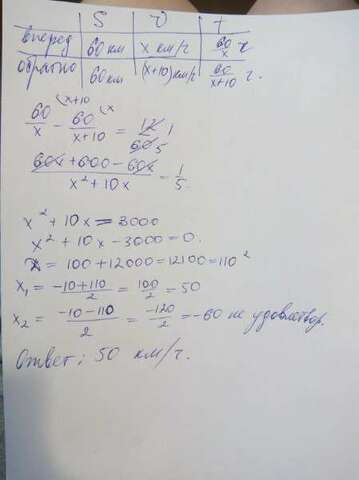 S V t
вперед 60 км x км/ч 60/x ч
обратно 60 км (x+10) км/ч 60/x+10 ч.
60/x - 60/x+10 = 12/60 1/5
60x+600-60x/x²+10x = 1/5.
x² + 10x = 3000
x² + 10x - 3000 = 0.
D = 100 + 12000 = 12100 = 110²
x₁ = -10+110/2 = 100/2 = 50
x₂ = -10-110/2 = -120/2 = -60 не удовлетвор.
Ответ: 50 км/ч.